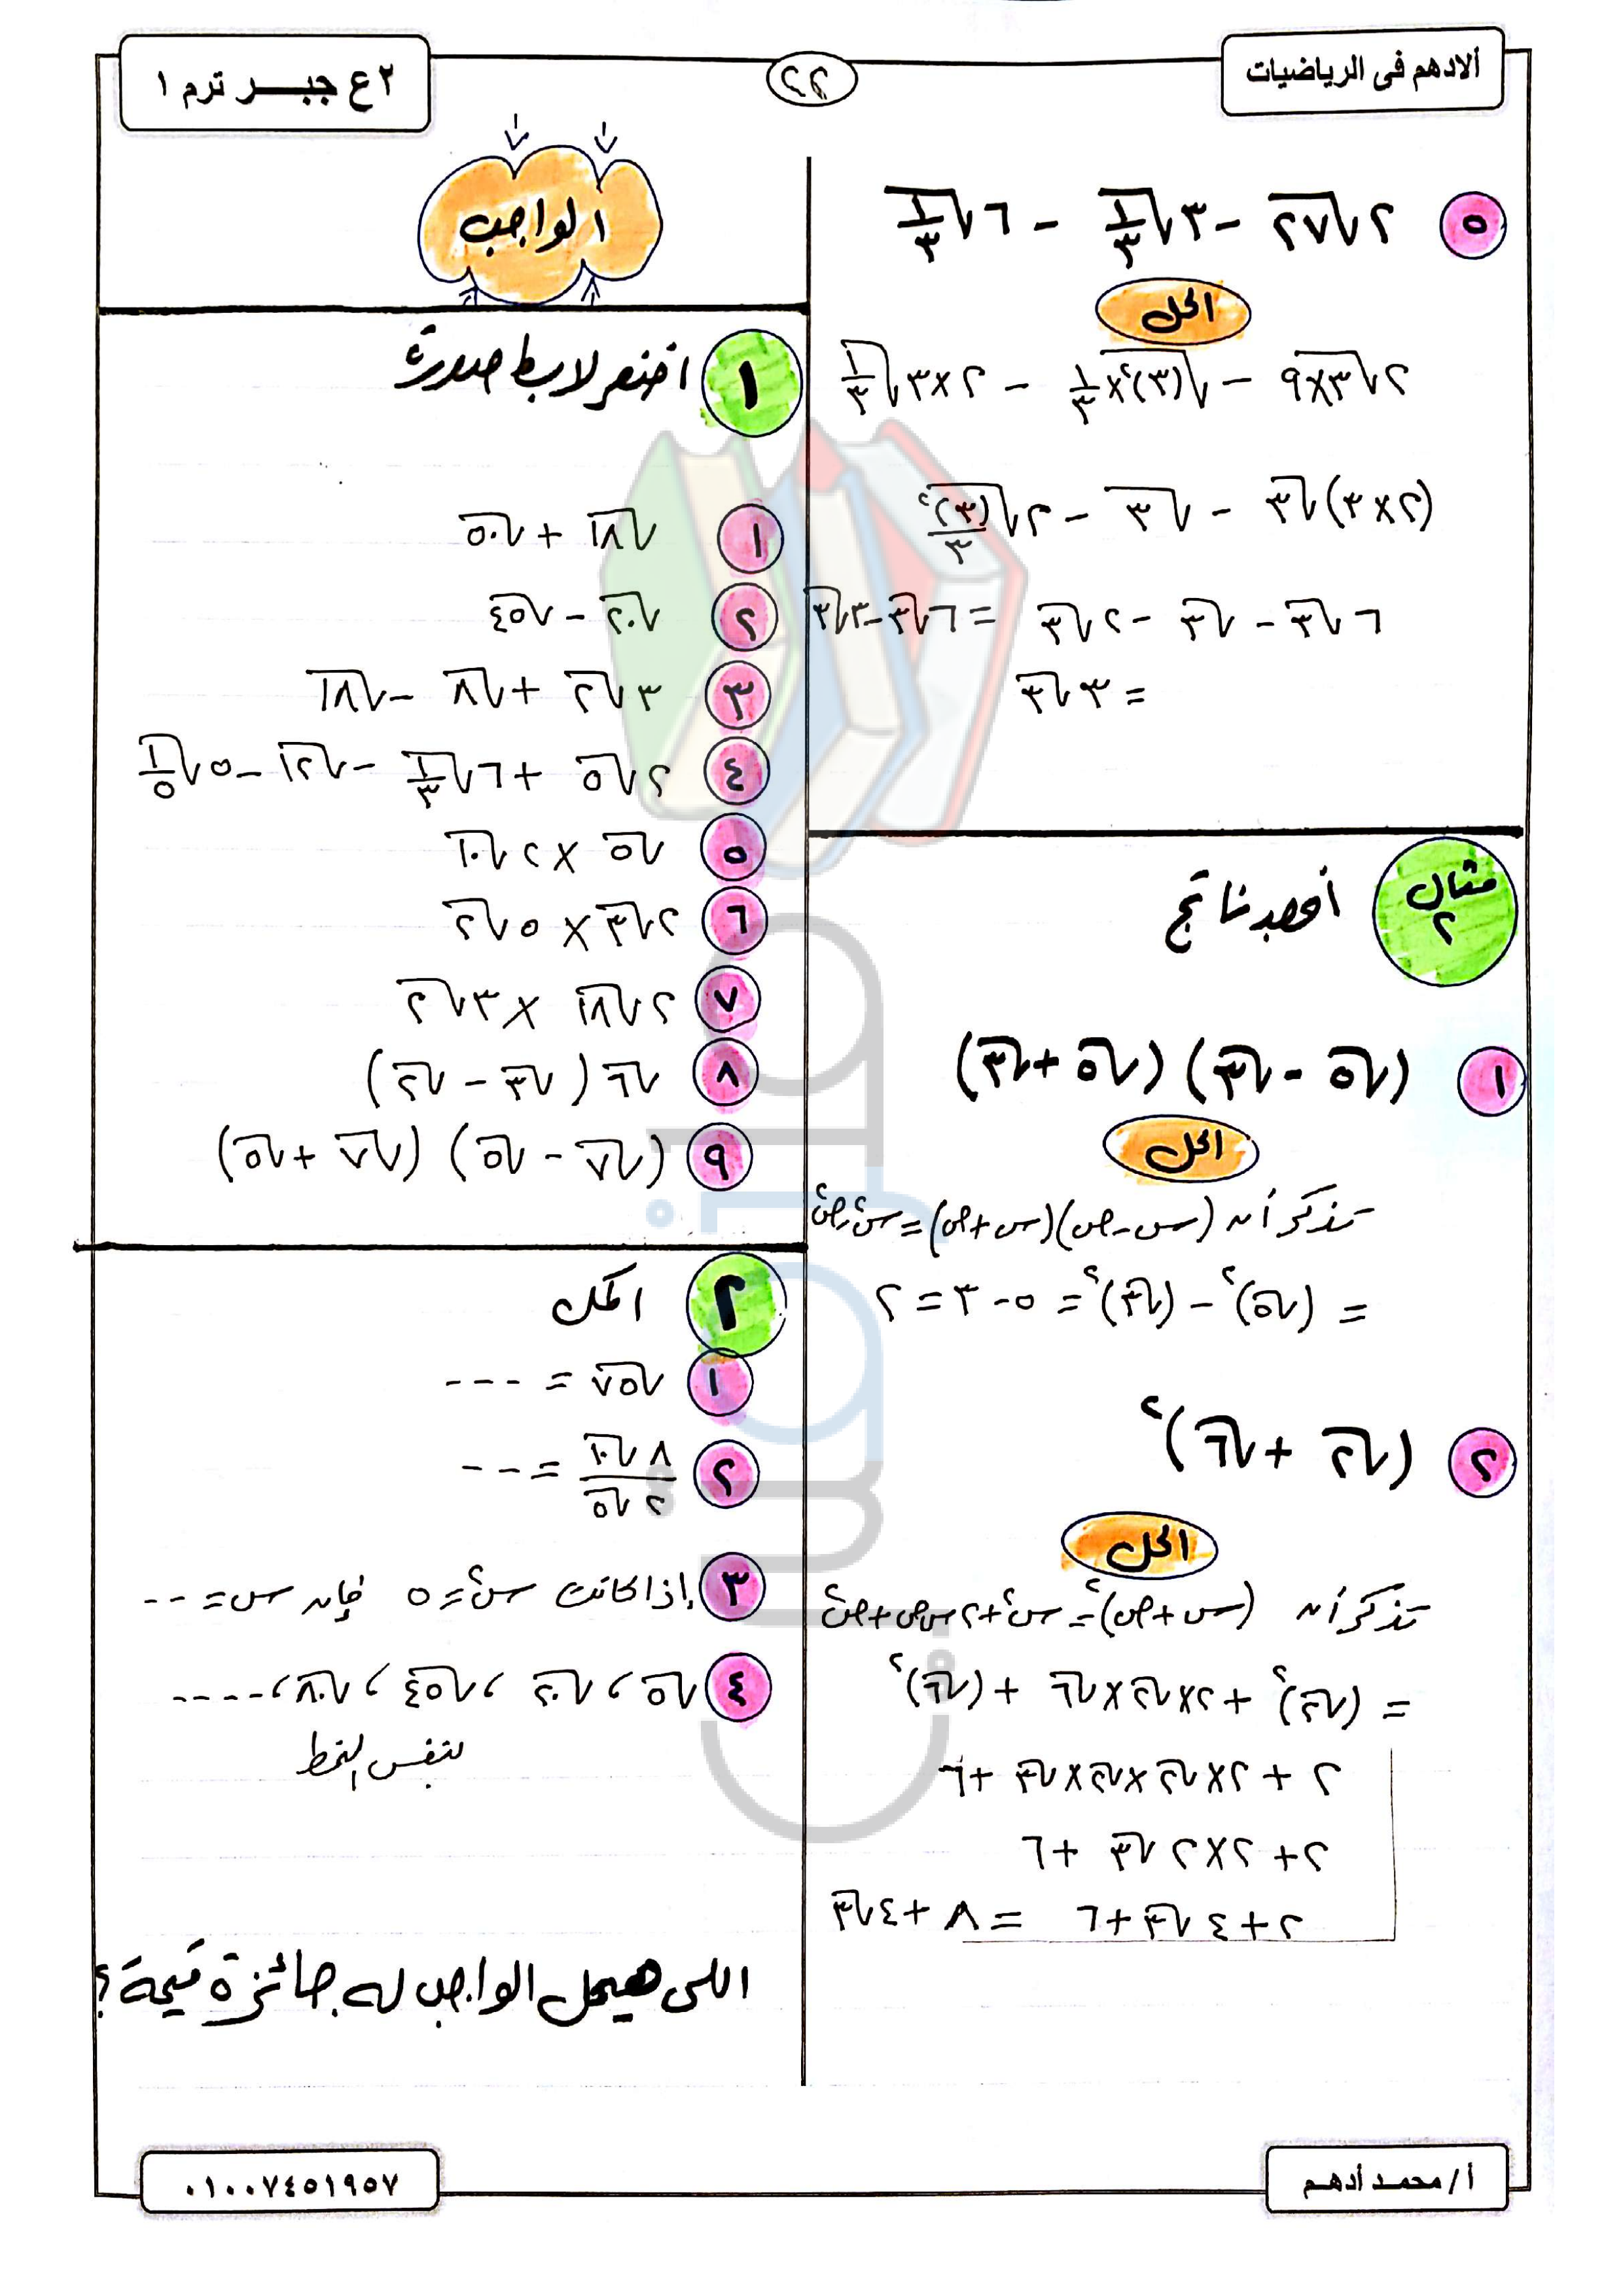 ألادهم فى الرياضيات
٢٢
٢ع جبر ترم ١
٥ ٢√٢٧ - ٣√١/٣ - ٦√١/٣
الحل
٢√٣×٩ - √(٣)²×١/٣ - ٢×٣√١/٣
(٢×٣)√٣ - √٣ - ٢√(٣)²/٣
٦√٣ - √٣ - ٢√٣ = ٦√٣ - ٣√٣
= ٣√٣
مثال ٢ أوجد ناتج
١ (√٥ - √٣) (√٥ + √٣)
الحل
تذكر أن (س-ص)(س+ص) = س² - ص²
= (√٥)² - (√٣)² = ٥ - ٣ = ٢
٢ (√٢ + √٦)²
الحل
تذكر أن (س+ص)² = س² + ٢س ص + ص²
= (√٢)² + ٢×√٢×√٦ + (√٦)²
٢ + ٢×√٢×√٢×√٣ + ٦
٢ + ٢×٢√٣ + ٦
٢ + ٤√٣ + ٦ = ٨ + ٤√٣
الواجب
١ اختصر لابسط صورة
١ √١٨ + √٥٠
٢ √٢٠ - √٤٥
٣ ٣√٢ + √٨ - √١٨
٤ ٢√٥ + ٦√١/٣ - √١٢ - ٥√١/٥
٥ √٥ × ٢√١٠
٦ ٢√٣ × ٥√٢
٧ ٢√١٨ × ٣√٢
٨ √٦ (√٣ - √٢)
٩ (√٧ - √٥) (√٧ + √٥)
٢ اكمل
١ √٧٥ = ---
٢ ٨√١٠ / ٢√٥ = ---
٣ إذا كانت س² = ٥ فإن س = --
٤ √٥ ، √٢٠ ، √٤٥ ، √٨٠ ، ----
بنفس النمط
اللى هيحل الواجب له جائزة قيمة؟
أ/ محمد أدهم
٠١٠٠٧٤٥١٩٥٧